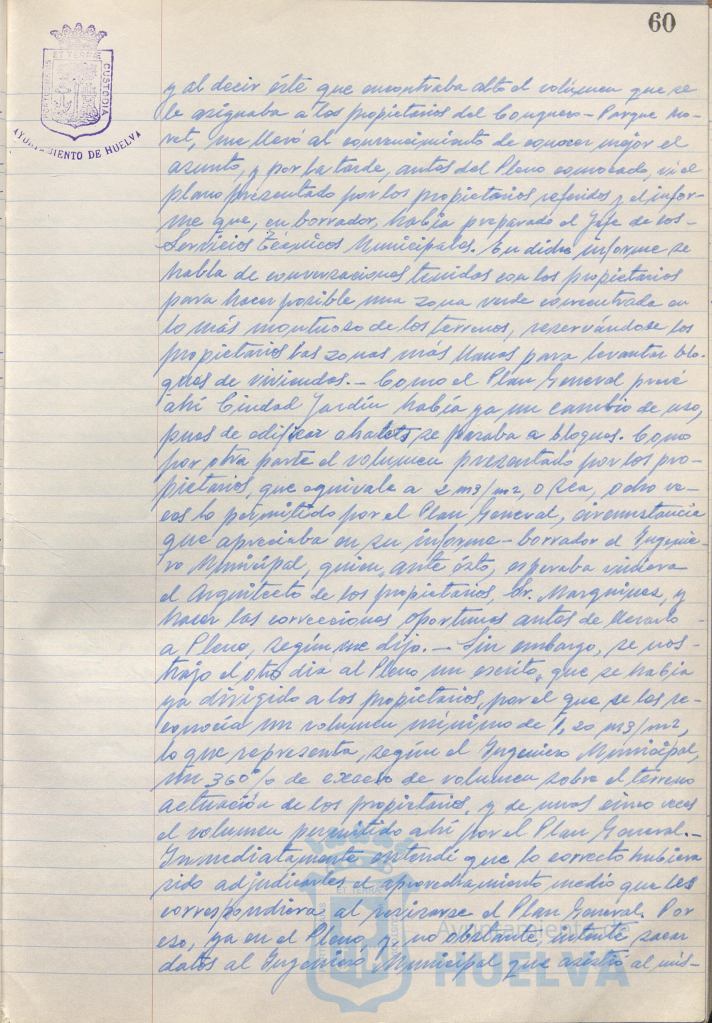 60
PORTUS MARIS
ET TERRÆ
CUSTODIA
AYUNTAMIENTO DE HUELVA
y al decir éste que encontraba alto el volúmen que se
le asignaba a los propietarios del Conquero-Parque Mo-
ret, me llevó al convencimiento de conocer mejor el
asunto, y por la tarde, antes del Pleno convocado, ví el
plano presentado por los propietarios referidos y el infor-
me que, en borrador, había preparado el Jefe de los
Servicios Técnicos Municipales. En dicho informe se
habla de conversaciones tenidas con los propietarios
para hacer posible una zona verde concentrada en
lo más montuoso de los terrenos, reservándose los
propietarios las zonas más llanas para levantar blo-
ques de viviendas.- Como el Plan General prevé
ahí Ciudad Jardín había ya un cambio de uso,
pues de edificar chalets se pasaba a bloques. Como
por otra parte el volumen presentado por los pro-
pietarios, que equivale a 2 m3/m2, o sea, ocho ve-
ces lo permitido por el Plan General, circunstancia
que apreciaba en su informe-borrador el Ingenie-
ro Municipal, quien, ante ésto, esperaba viniera
el Arquitecto de los propietarios, Sr. Marquínez, y
hacer las correcciones oportunas antes de llevarlo
a Pleno, según me dijo.- Sin embargo, se nos
trajo el otro día al Pleno un escrito, que se había
ya dirigido a los propietarios, por el que se les re-
conocía un volumen mínimo de 1,20 m3/m2,
lo que representa, según el Ingeniero Municipal,
un 360% de exceso de volumen sobre el terreno
actuación de los propietarios, y de unas cinco veces
el volumen permitido ahí por el Plan General.-
Inmediatamente entendí que lo correcto hubiera
sido adjudicarles el aprovechamiento medio que les
correspondiera al revisarse el Plan General. Por
eso, ya en el Pleno, y, no obstante, intenté sacar
datos al Ingeniero Municipal que asistió al mis-
ET TERRÆ
Ayuntamiento de
HUELVA